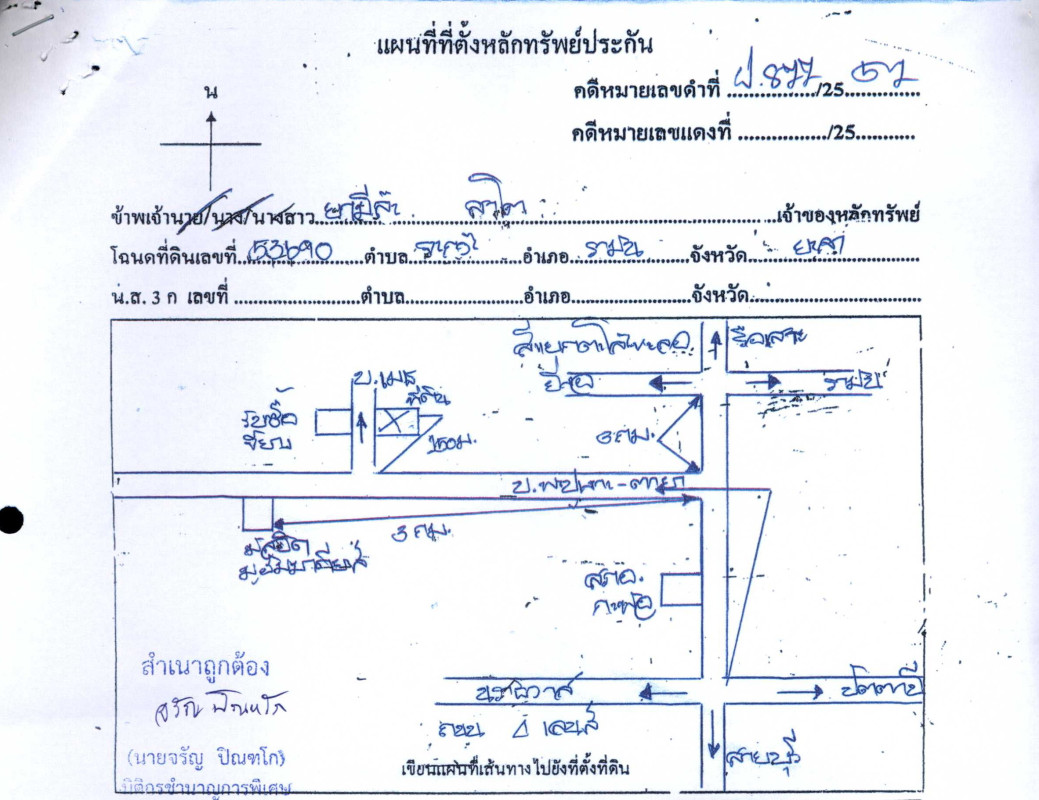 แผนที่ที่ตั้งหลักทรัพย์ประกัน
น
คดีหมายเลขดำที่ ผ.877/25 67
คดีหมายเลขแดงที่ ............/25..........
ข้าพเจ้านาย/นาง/นางสาว เจ้าของหลักทรัพย์
โฉนดที่ดินเลขที่ 53690 ตำบล อำเภอ รามัน จังหวัด ยะลา
น.ส. 3 ก เลขที่ .................... ตำบล .................... อำเภอ .................... จังหวัด ....................
รือเสาะ
ยี่งอ
รามัน
ที่ดิน
รับซื้อ
150ม.
3 กม.
3 กม.
มัสยิด
สภอ.
กะพ้อ
นราธิวาส
ปัตตานี
ถนน 4 เลนส์
สายบุรี
สำเนาถูกต้อง
(นายจรัญ ปิณฑโก)
นิติกรชำนาญการพิเศษ
เขียนแผนที่เส้นทางไปยังที่ตั้งที่ดิน